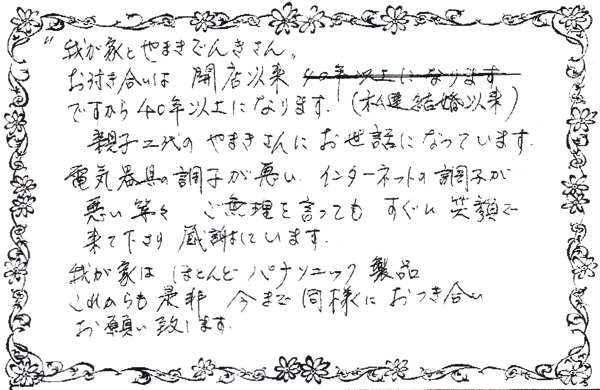 "我が家とやまきでんきさん"
お付き合いは 開店以来 40年以上になります
ですから40年以上になります。(私達結婚以来)
親子二代の やまきさんに お世話になっています。
電気器具の調子が悪い インターネットの調子が
悪い等々 ご無理を言っても すぐに 笑顔で
来て下さり 感謝しています。
我が家は ほとんど パナソニック 製品
これからも 是非 今まで 同様に おつき合い
お願い致します。